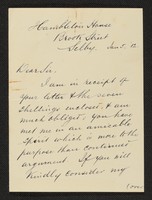 Hambleton House
Brook Street
Selby. Jan 2. 12
Dear Sir,
I am in receipt of
your letter & the seven
shillings enclosed, & am
much obliged. You have
met me in an amicable
spirit which is more to the
purpose than continued
argument. If you will
kindly consider my
(over